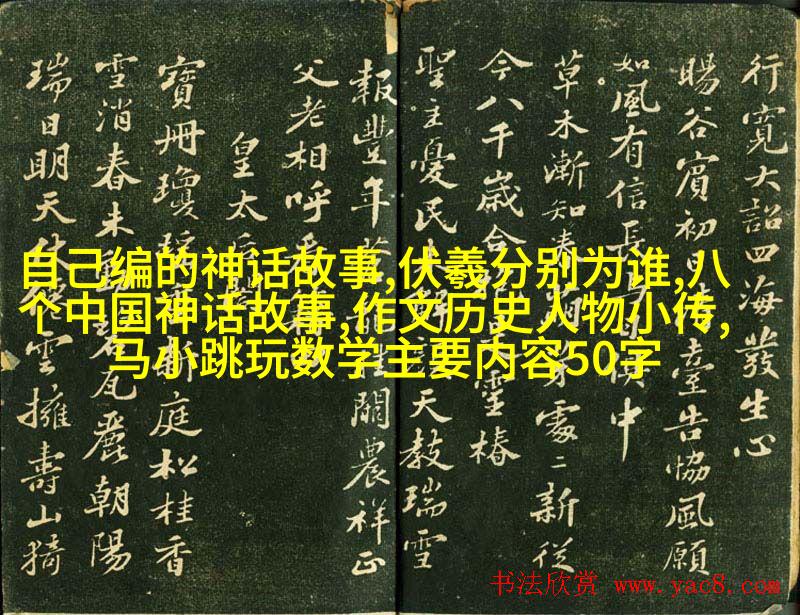 行寛大詔四海發生心
暘谷賓初日臺告協風願
如風有信長中
草木漸知春處〻新從
今八千歳合靈椿
聖主憂民天教瑞雪
報豐年闕農祥正
父老相呼
皇太
寶冊瓊庭松桂香
雪消春未瓦麗朝陽
瑞日明天雲擁壽山猗
自己编的神话故事,伏羲分别为谁,八
个中国神话故事,作文历史人物小传,
马小跳玩数学主要内容50字
书法欣赏 www.yac8.com